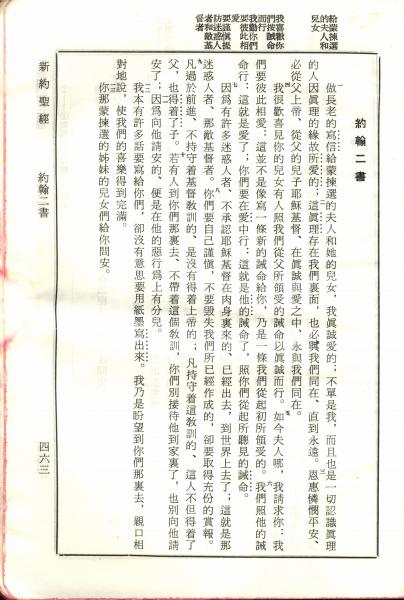 約翰二書
給蒙揀選
的夫人和
兒女
做長老的寫信給蒙揀選的夫人和她的兒女，我眞誠愛的；不單是我，而且也是一切認識眞理
的人因眞理的緣故所愛的；這眞理存在我們裏面，也必與我們同在、直到永遠。恩惠憐憫平安、
必從父上帝、從父的兒子耶穌基督、在眞誠與愛之中、永與我們同在。
我喜歡你
們按誡命
而行
我勸你們
要彼此相
愛
我很歡喜見你的兒女有人照我們從父所領受的誡命以眞誠而行。如今夫人哪，我請求你：我
們要彼此相愛；這並不是像寫一條新的誡命給你，乃是一條我們從起初所領受的。我們照他的誡
命行：這就是愛了；你們要在愛中行：這就是他的誡命了，照你們從起所聽見的誡命。
要謹愼提
防迷惑人
者和敵基
督者
因爲有許多迷惑人者、不承認耶穌基督在肉身裏來的、已經出去，到世界上去了；這就是那
迷惑人者、那敵基督者。你們要自己謹愼，不要毀失我們所已經作成的，卻要取得充份的賞報。
凡過於前進、不持守着基督敎訓的、是沒有得着上帝的；凡持守着這敎訓的、這人不但得着了
父，也得着了子。若有人到你們那裏去、不帶着這個敎訓，你們別接待他到家裏了，也別向他請
安了；因爲向他請安的、便是在他的惡行爲上有分兒。
我本有許多話要寫給你們，卻沒有意思要用紙墨寫出來。我乃是盼望到你們那裏去，親口相
對地說，使我們的喜樂得到完滿。
你那蒙揀選的姊妹的兒女們給你問安。
新約聖經　約翰二書　四六三